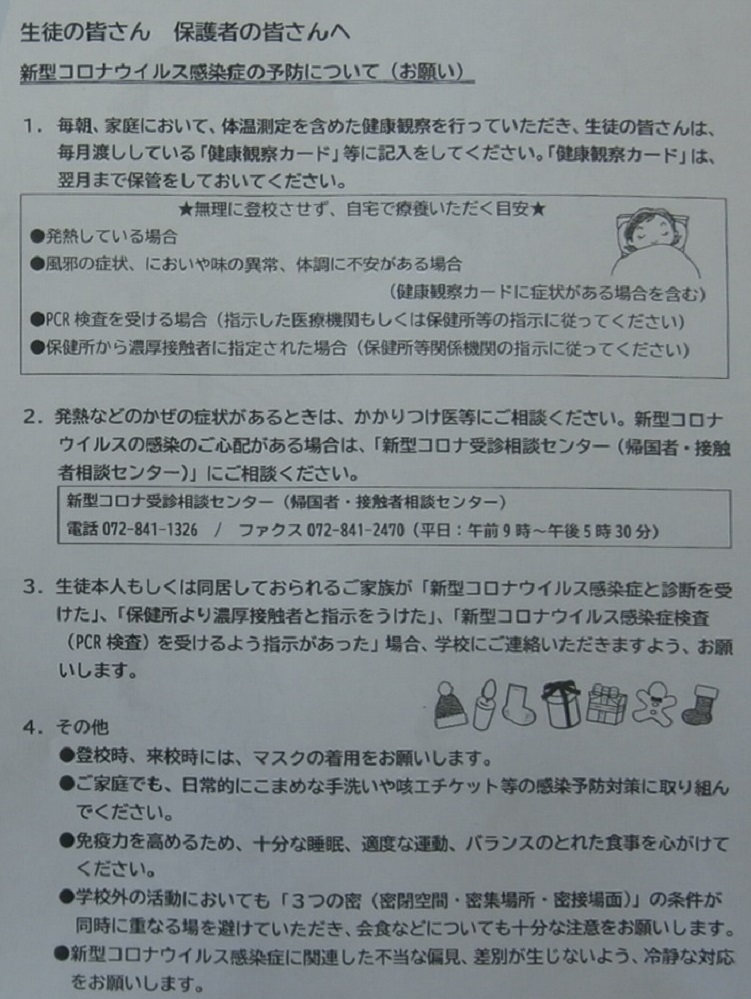 生徒の皆さん　保護者の皆さんへ
新型コロナウイルス感染症の予防について（お願い）
１．毎朝、家庭において、体温測定を含めた健康観察を行っていただき、生徒の皆さんは、
毎月渡ししている「健康観察カード」等に記入をしてください。「健康観察カード」は、
翌月まで保管をしておいてください。
★無理に登校させず、自宅で療養いただく目安★
●発熱している場合
●風邪の症状、においや味の異常、体調に不安がある場合
（健康観察カードに症状がある場合を含む）
●PCR 検査を受ける場合（指示した医療機関もしくは保健所等の指示に従ってください）
●保健所から濃厚接触者に指定された場合（保健所等関係機関の指示に従ってください）
２．発熱などのかぜの症状があるときは、かかりつけ医等にご相談ください。新型コロナ
ウイルスの感染のご心配がある場合は、「新型コロナ受診相談センター（帰国者・接触
者相談センター）」にご相談ください。
新型コロナ受診相談センター（帰国者・接触者相談センター）
電話 072-841-1326　/　ファクス 072-841-2470（平日：午前 9 時～午後 5 時 30 分）
３．生徒本人もしくは同居しておられるご家族が「新型コロナウイルス感染症と診断を受
けた」、「保健所より濃厚接触者と指示をうけた」、「新型コロナウイルス感染症検査
（PCR 検査）を受けるよう指示があった」場合、学校にご連絡いただきますよう、お願
いします。
４．その他
●登校時、来校時には、マスクの着用をお願いします。
●ご家庭でも、日常的にこまめな手洗いや咳エチケット等の感染予防対策に取り組ん
でください。
●免疫力を高めるため、十分な睡眠、適度な運動、バランスのとれた食事を心がけて
ください。
●学校外の活動においても「３つの密（密閉空間・密集場所・密接場面）」の条件が
同時に重なる場を避けていただき、会食などについても十分な注意をお願いします。
●新型コロナウイルス感染症に関連した不当な偏見、差別が生じないよう、冷静な対応
をお願いします。